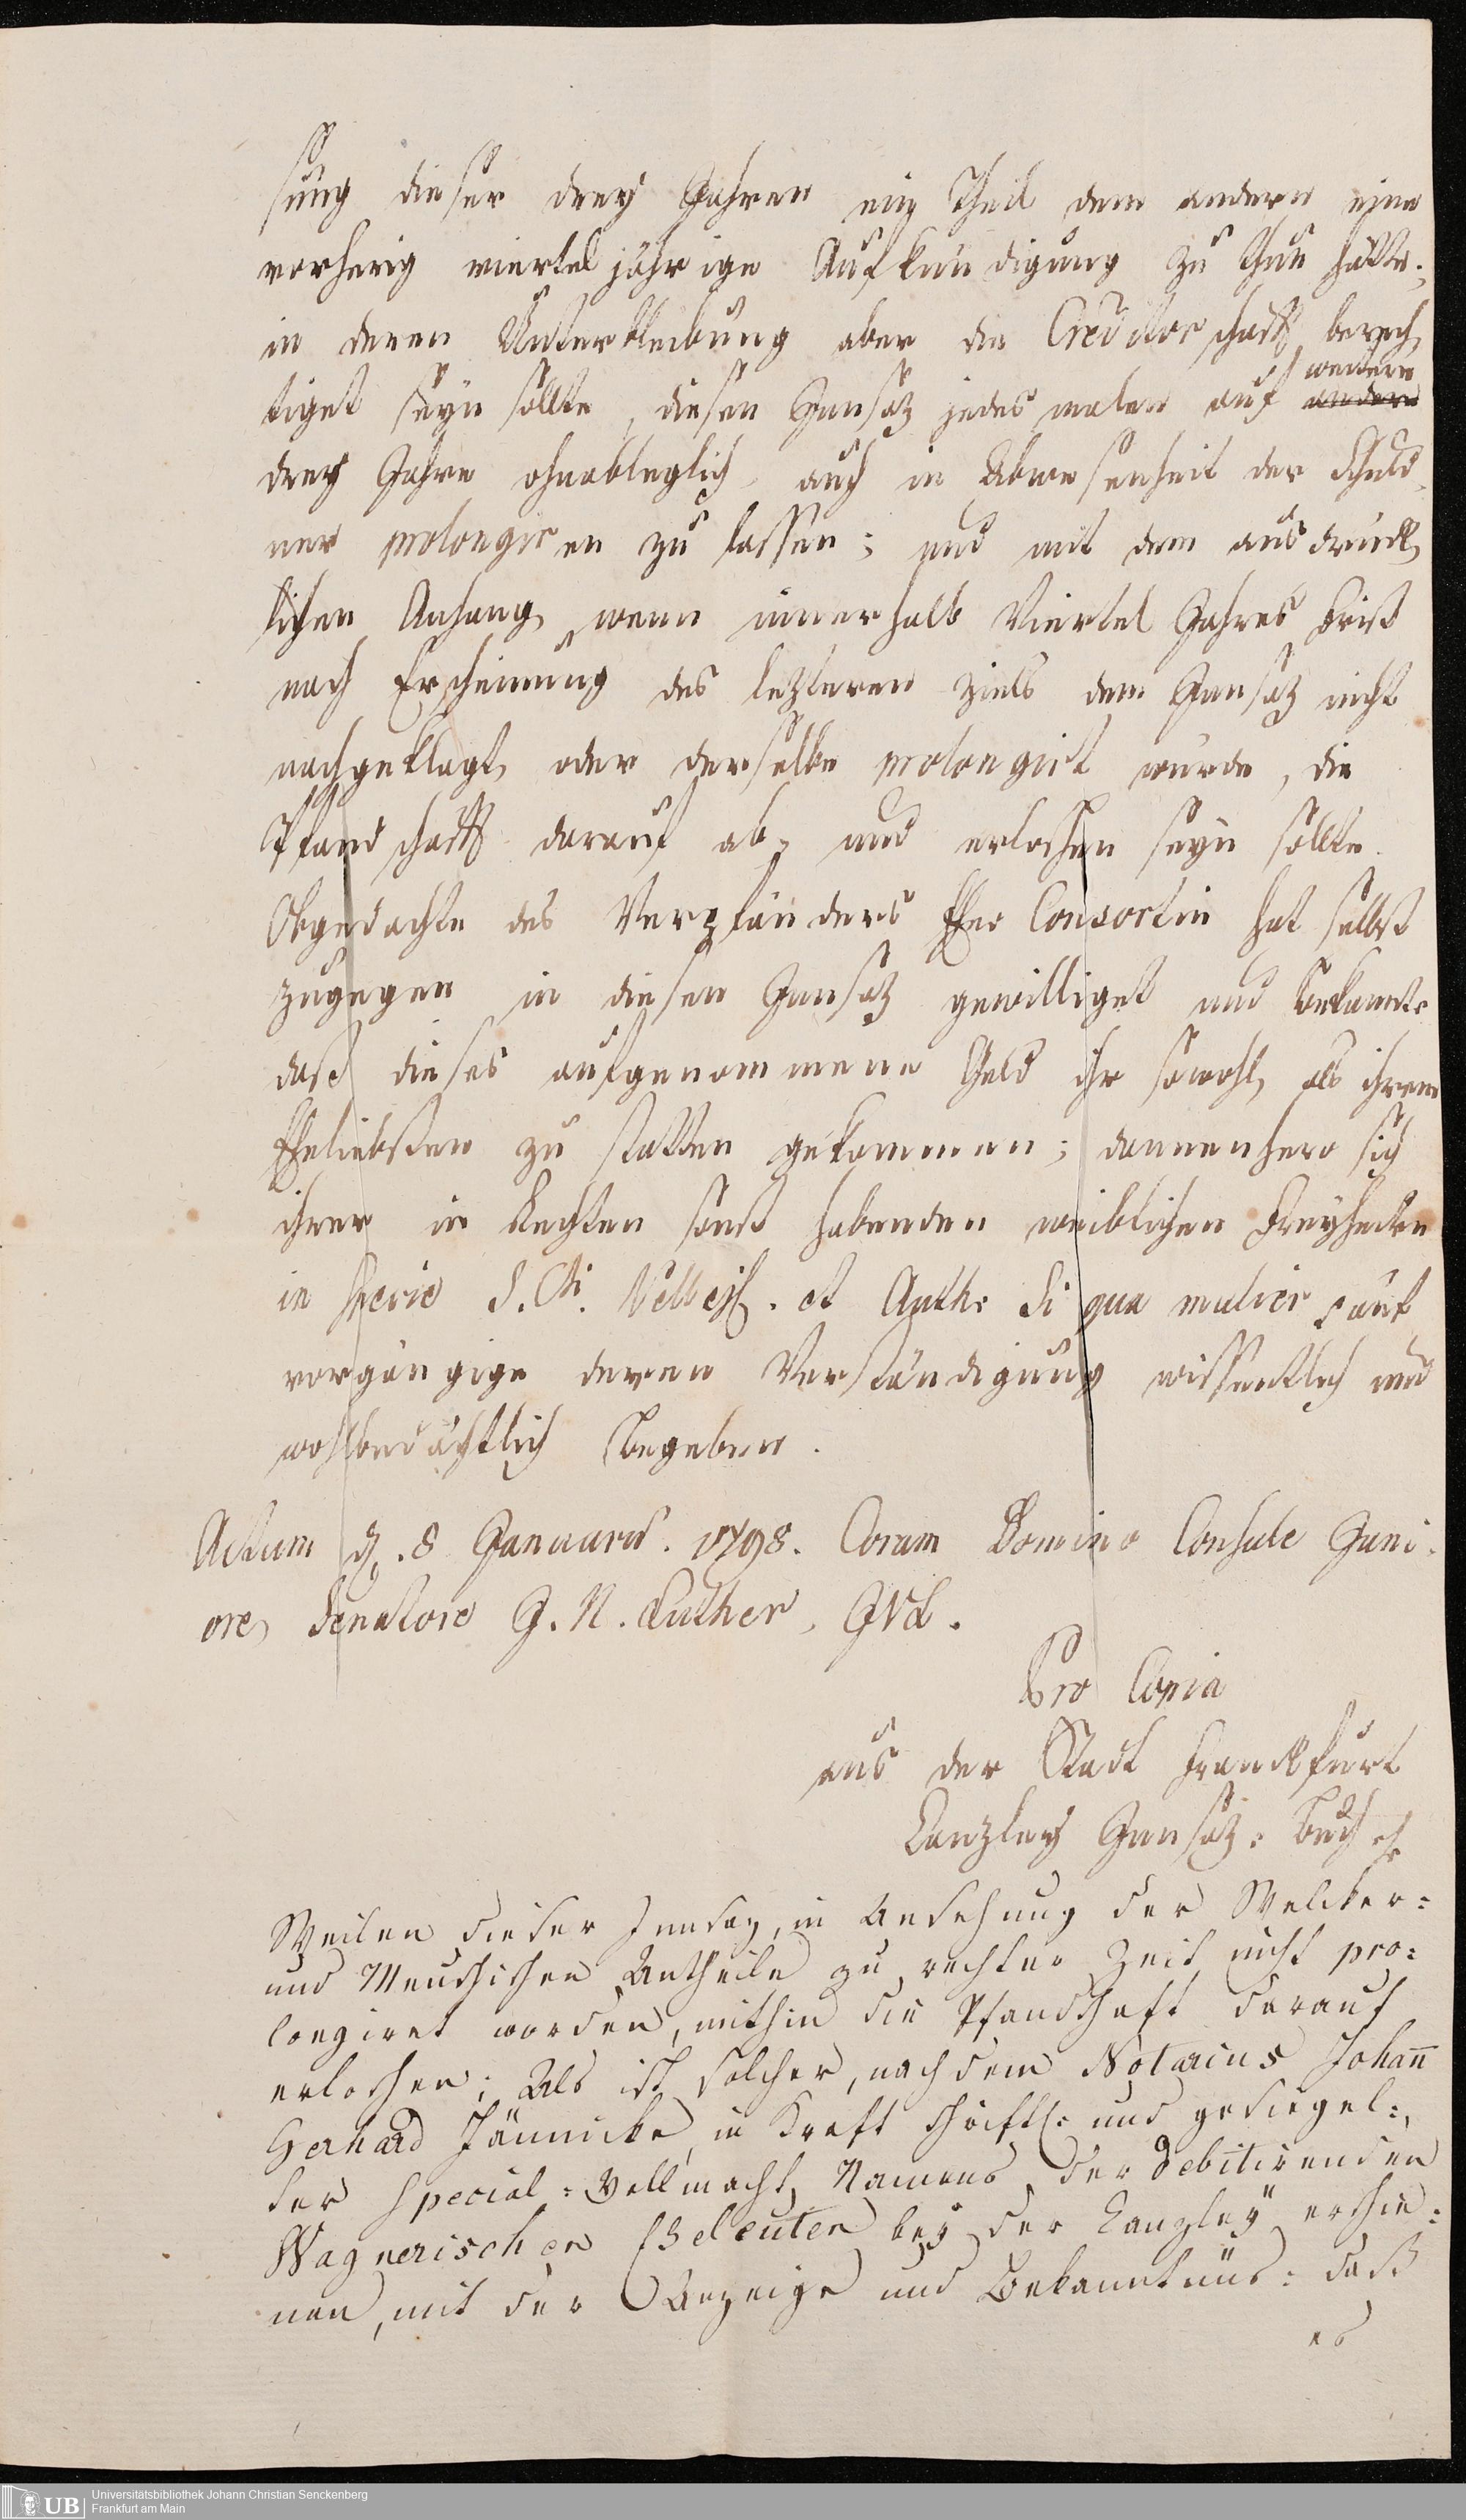 sung dieser drey Jahren ein Theil dem andern eine
vorherig vierteljährige Aufkündigung zu thun hätte;
in deren Unterbleibung aber die Creditorschafft berech
tiget seyn sollte, diesen Innsaz jedesmalen auf weitere andere
drey Jahre ohnableglich auch in Abwesenheit der Schuld
ner prolongiren zu lassen; und mit dem ausdrück
lichen Anhang, wenn innerhalb Viertel Jahres Frist
nach Erscheinung des lezteren Ziels dem Innsaz nicht
nachgeklagt, oder derselbe prolongirt wurde, die
Pfandschafft darauf ab- und erloschen seyn sollte.
Obgedachte des Verpfänders Ehe Consortin hat selbst
zugegen in diesen Innsaz gewilliget und bekannte
daß dieses aufgenommene Geld ihr sowohl, als ihrem
Eheliebsten zu statten gekommen; dannenhero sich
ihrer in Rechten sonst habenden weiblichen Freyheiten
in specie S. Cti. Vellej. et Auth: Si qua mulier auf
vorgängige deren Verständigung wissentlich und
wohlbedächtlich begeben.
Actum d. 8 Januarii. 1798. Coram Domino Consule Juni-
ore, Senatore J. N. Luther, JVL.
Pro Copia
aus der Stadt Franckfurt
Canzley Innsaz-Buch
Weilen dieser Innsaz, in Ansehung der Welcker-
und Meuschischen Antheile zu rechter Zeit nicht pro-
longiret worden, mithin die Pfandschaft darauf
erloschen; Als ist solcher, nachdem Notarius Johann
Gerhard Jännicke, in Kraft schriftl: und gesiegel-
ter Special-Vollmacht, Namens der debitirenden
Wagnerischen Eheleuten bey der Canzley erschie-
nen, mit der Anzeige und Bekanntnüs: daß
es
Universitätsbibliothek Johann Christian Senckenberg
Frankfurt am Main
UB